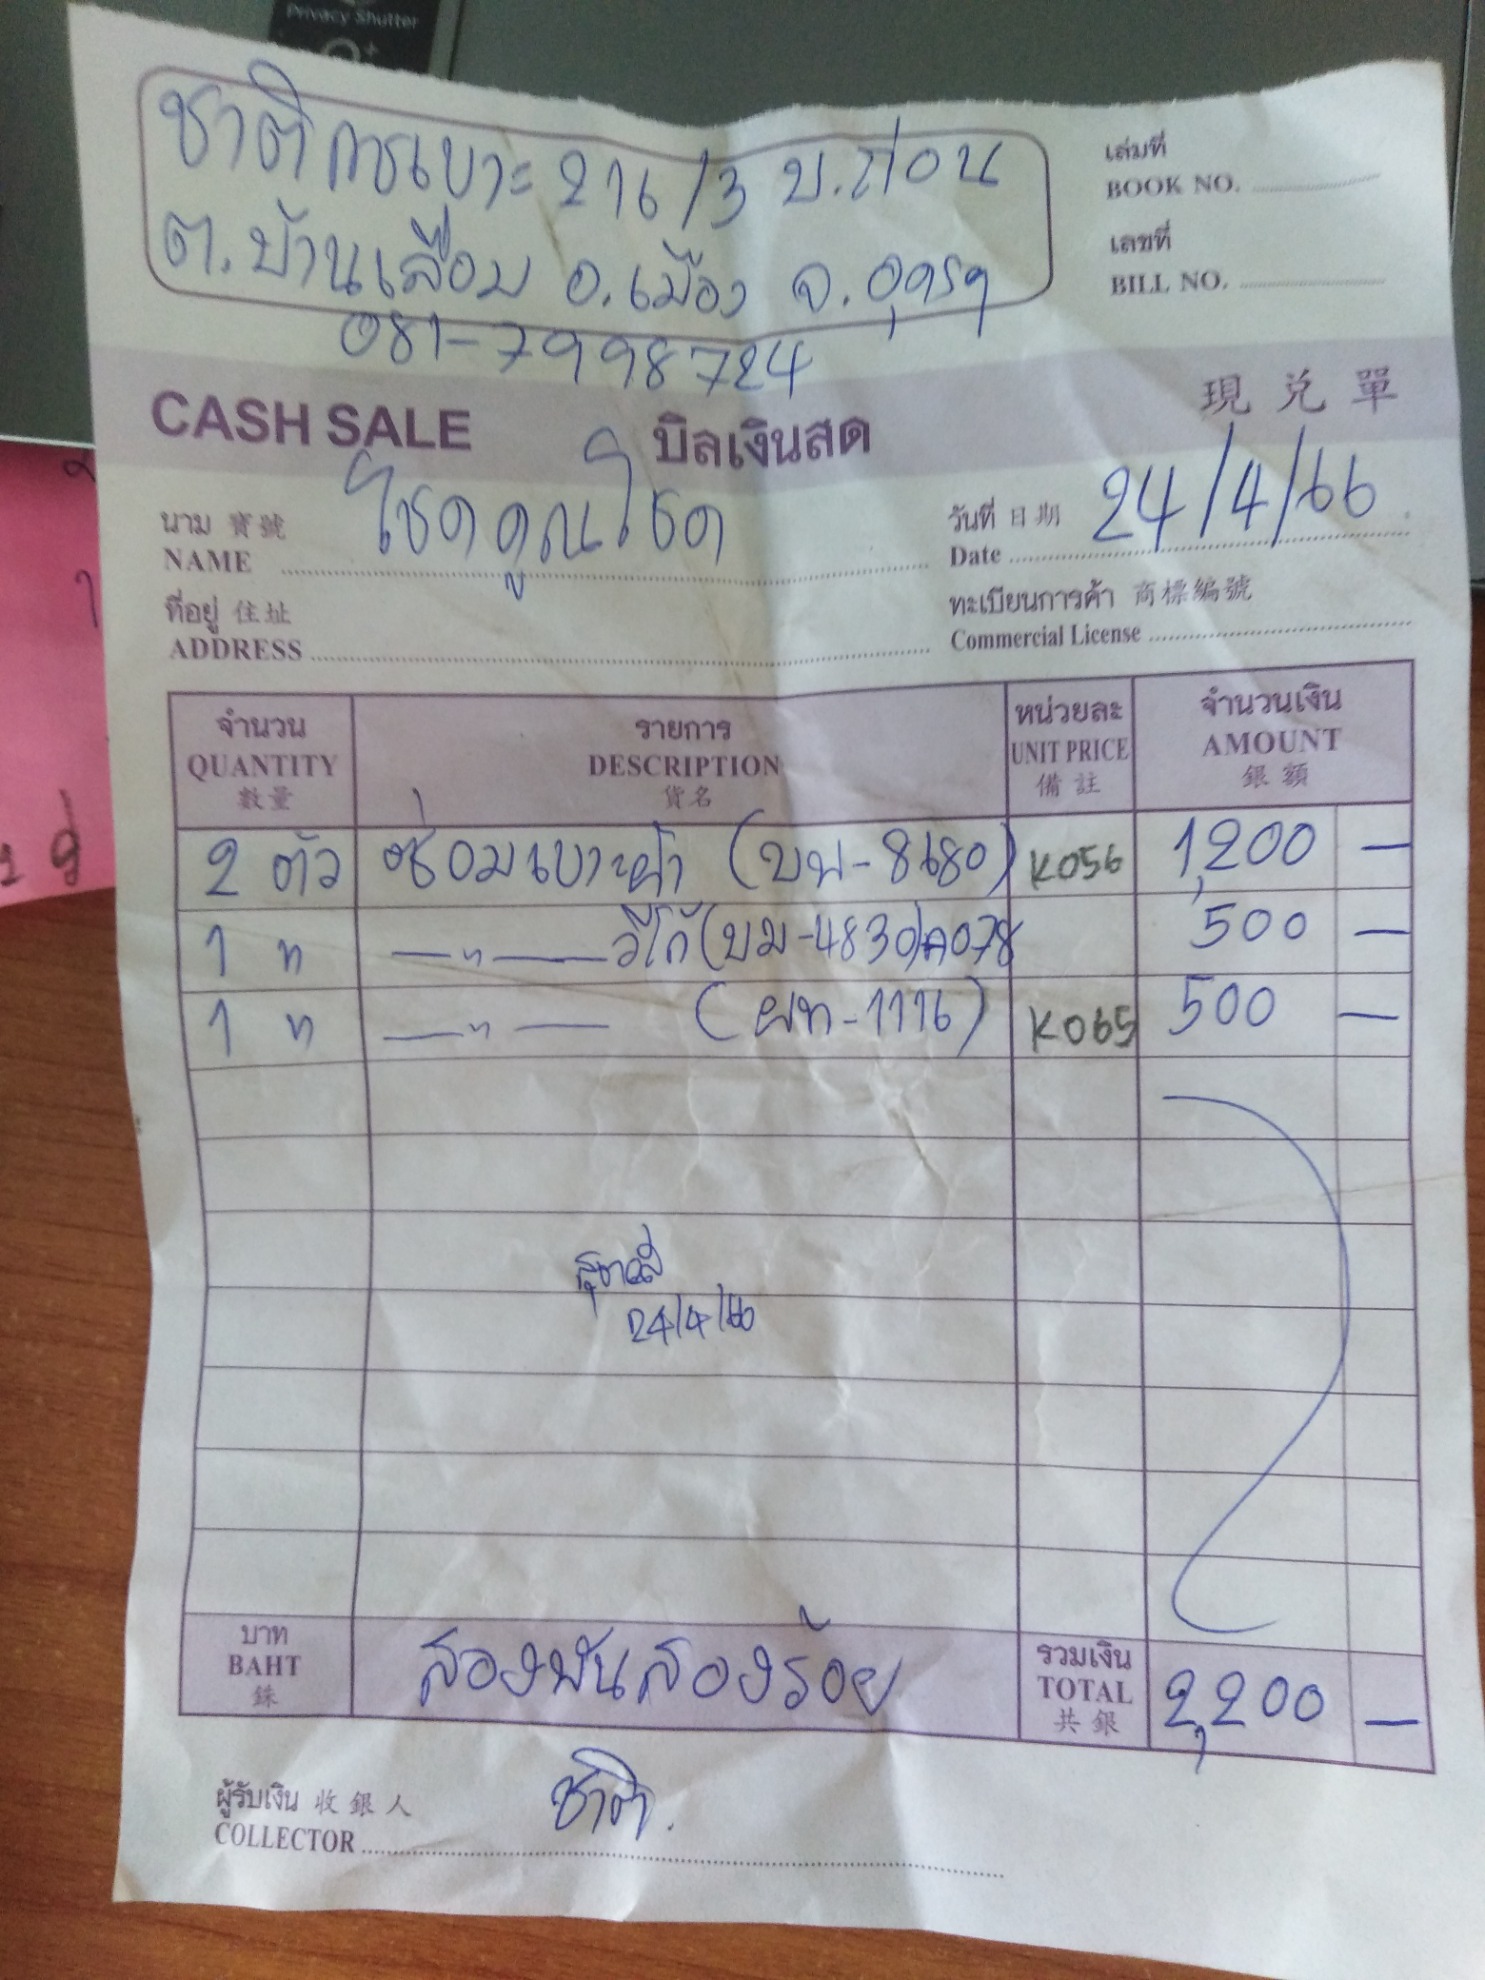 Privacy Shutter
ชาติการเบาะ 216/3 บ.ก่อน
ต.บ้านเลื่อม อ.เมือง จ.อุดรฯ
081-7998724
เล่มที่
BOOK NO.
เลขที่
BILL NO.
CASH SALE บิลเงินสด 現兌單
นาม 寶號 NAME โชคคูณโชค
วันที่ 日期 Date 24/4/66
ที่อยู่ 住址
ADDRESS
ทะเบียนการค้า 商標編號
Commercial License
จำนวน รายการ หน่วยละ จำนวนเงิน
QUANTITY DESCRIPTION UNIT PRICE AMOUNT
數量 貨名 備註 銀額
2 ตัว ซ่อมเบาะผ้า (บพ-8680) K056 1,200 —
1 " —"— วีโก้ (บม-4830) A078 500 —
1 " —"— (ผท-1116) K065 500 —
24/4/66
บาท
BAHT
銖
สองพันสองร้อย
รวมเงิน
TOTAL
共銀
2,200 —
ผู้รับเงิน 收銀人
COLLECTOR ชาติ.